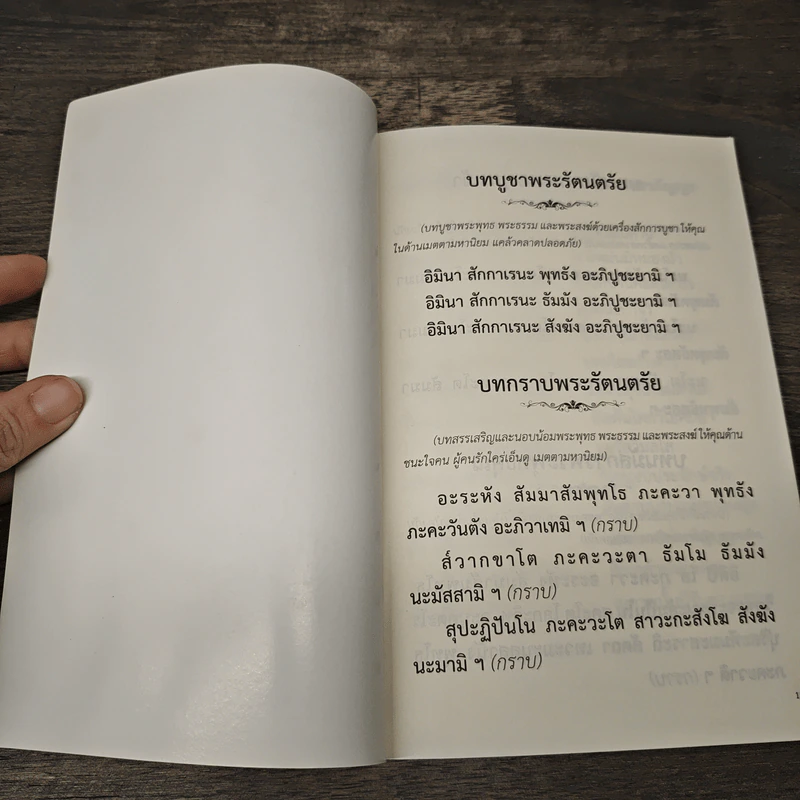 บทบูชาพระรัตนตรัย
(บทบูชาพระพุทธ พระธรรม และพระสงฆ์ด้วยเครื่องสักการบูชา ให้คุณ
ในด้านเมตตามหานิยม แคล้วคลาดปลอดภัย)
อิมินา สักกาเรนะ พุทธัง อะภิปูชะยามิ ฯ
อิมินา สักกาเรนะ ธัมมัง อะภิปูชะยามิ ฯ
อิมินา สักกาเรนะ สังฆัง อะภิปูชะยามิ ฯ
บทกราบพระรัตนตรัย
(บทสรรเสริญและนอบน้อมพระพุทธ พระธรรม และพระสงฆ์ ให้คุณด้าน
ชนะใจคน ผู้คนรักใคร่เอ็นดู เมตตามหานิยม)
อะระหัง สัมมาสัมพุทโธ ภะคะวา พุทธัง
ภะคะวันตัง อะภิวาเทมิ ฯ (กราบ)
ส์วากขาโต ภะคะวะตา ธัมโม ธัมมัง
นะมัสสามิ ฯ (กราบ)
สุปะฏิปันโน ภะคะวะโต สาวะกะสังโฆ สังฆัง
นะมามิ ฯ (กราบ)
1